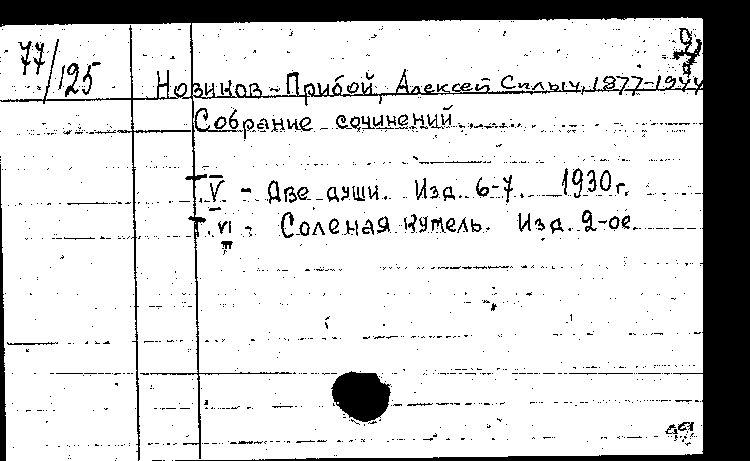 77/125
Новиков-Прибой, Алексей Силыч, 1877-1944
Собрание сочинений
Т. V - Две души. Изд. 6-7. 1930г.
Т. VI - Соленая купель. Изд. 2-ое.